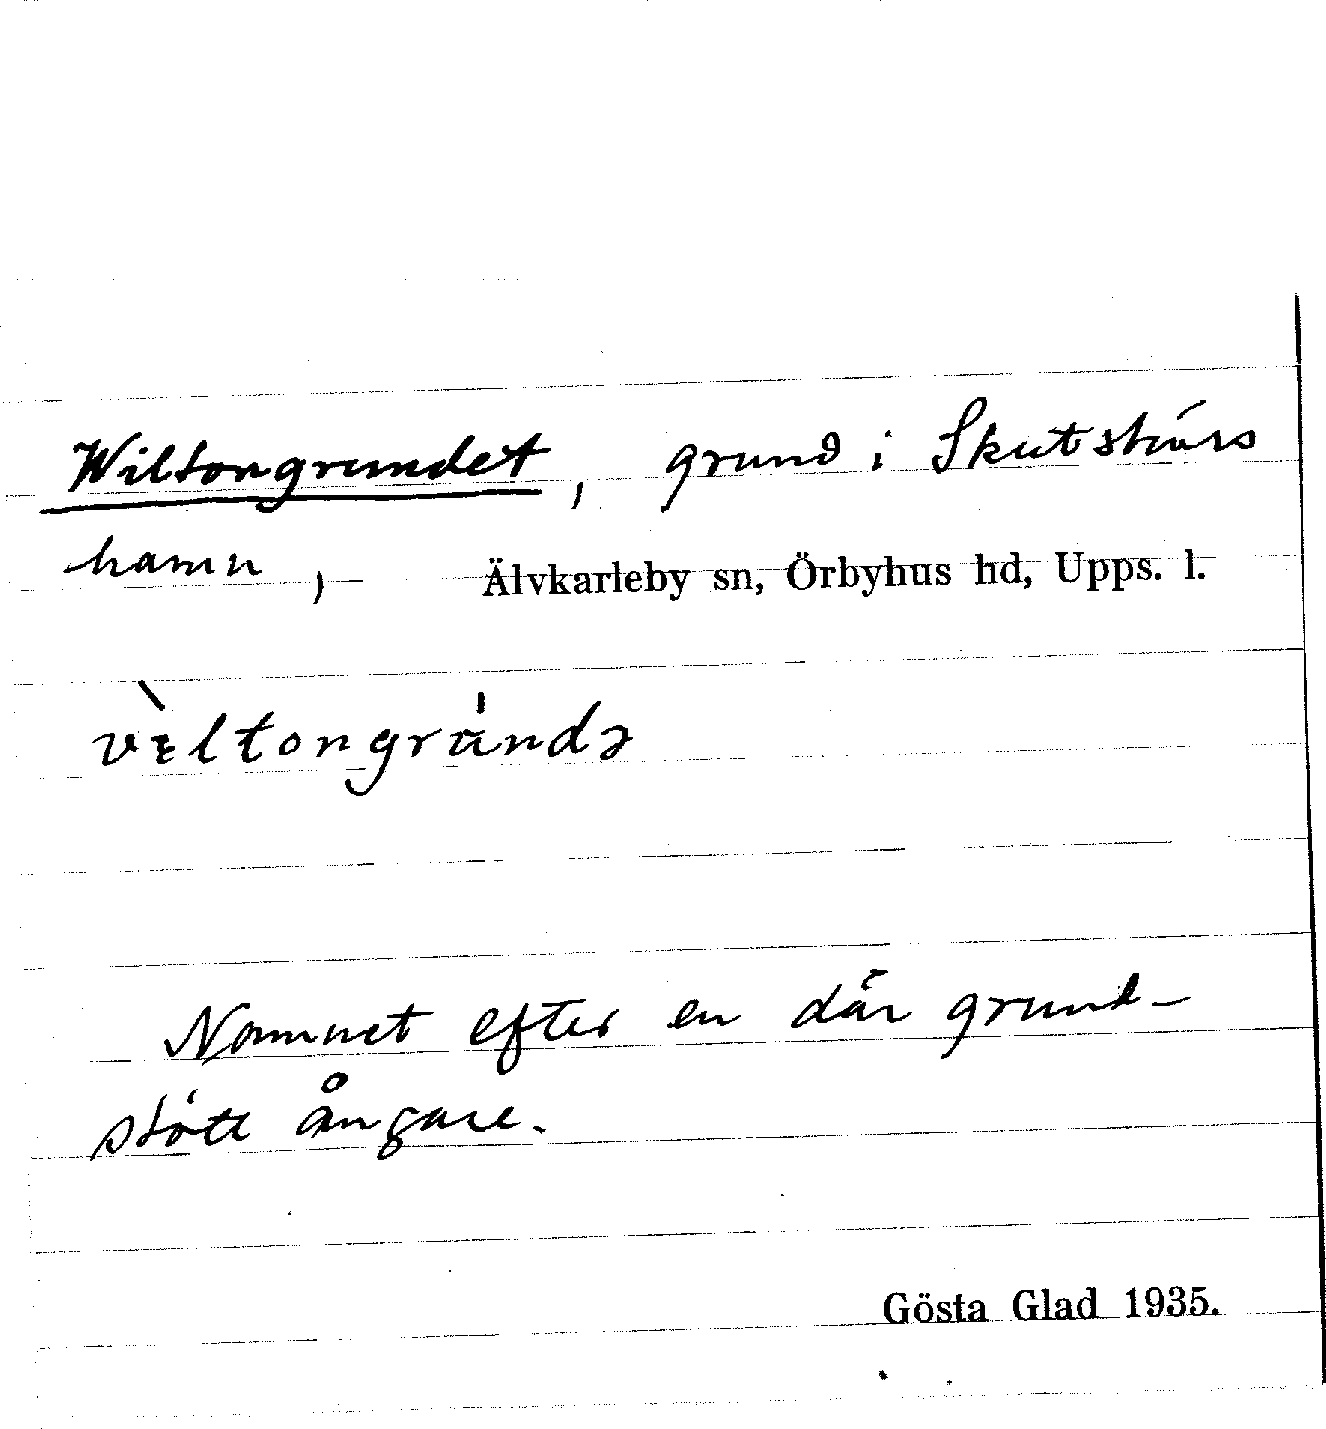 Wiltongrundet, grund i Skutskärs
hamn, Älvkarleby sn, Örbyhus hd, Upps. l.
vɪ̀ltongrúndə
Namnet efter en där grund-
stött ångare.
Gösta Glad 1935.